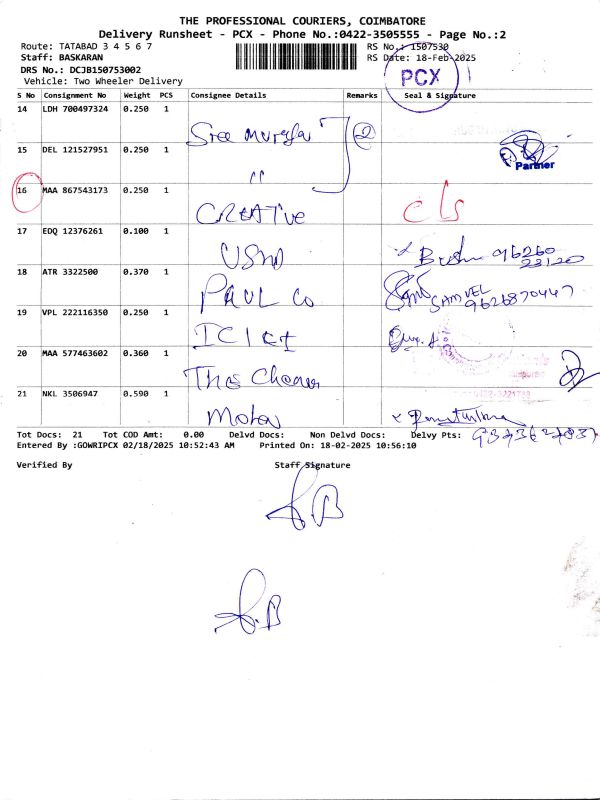 THE PROFESSIONAL COURIERS, COIMBATORE
Delivery Runsheet - PCX - Phone No.:0422-3505555 - Page No.:2
Route: TATABAD 3 4 5 6 7
RS No.: 1507530
Staff: BASKARAN
RS Date: 18-Feb-2025
DRS No.: DCJB150753002
PCX
Vehicle: Two Wheeler Delivery
S No Consignment No Weight PCS Consignee Details Remarks Seal & Signature
14 LDH 700497324 0.250 1 Sree 2
15 DEL 121527951 0.250 1 "
Partner
16 MAA 867543173 0.250 1 CREATIVE cls
17 EDQ 12376261 0.100 1 96260
18 ATR 3322500 0.370 1 PAUL Co SAMVEL
9626870447
19 VPL 222116350 0.250 1
20 MAA 577463602 0.360 1
21 NKL 3506947 0.590 1
Tot Docs: 21 Tot COD Amt: 0.00 Delvd Docs: Non Delvd Docs: Delvy Pts:
Entered By :GOWRIPCX 02/18/2025 10:52:43 AM Printed On: 18-02-2025 10:56:10
Verified By Staff Signature